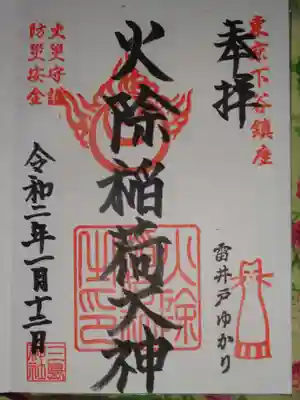 東京下谷鎮座
奉拝
雷井戸ゆかり
火除稲荷大神
火除
稲荷
之印
火災守護
防災安全
令和二年一月十二日
三島
神社